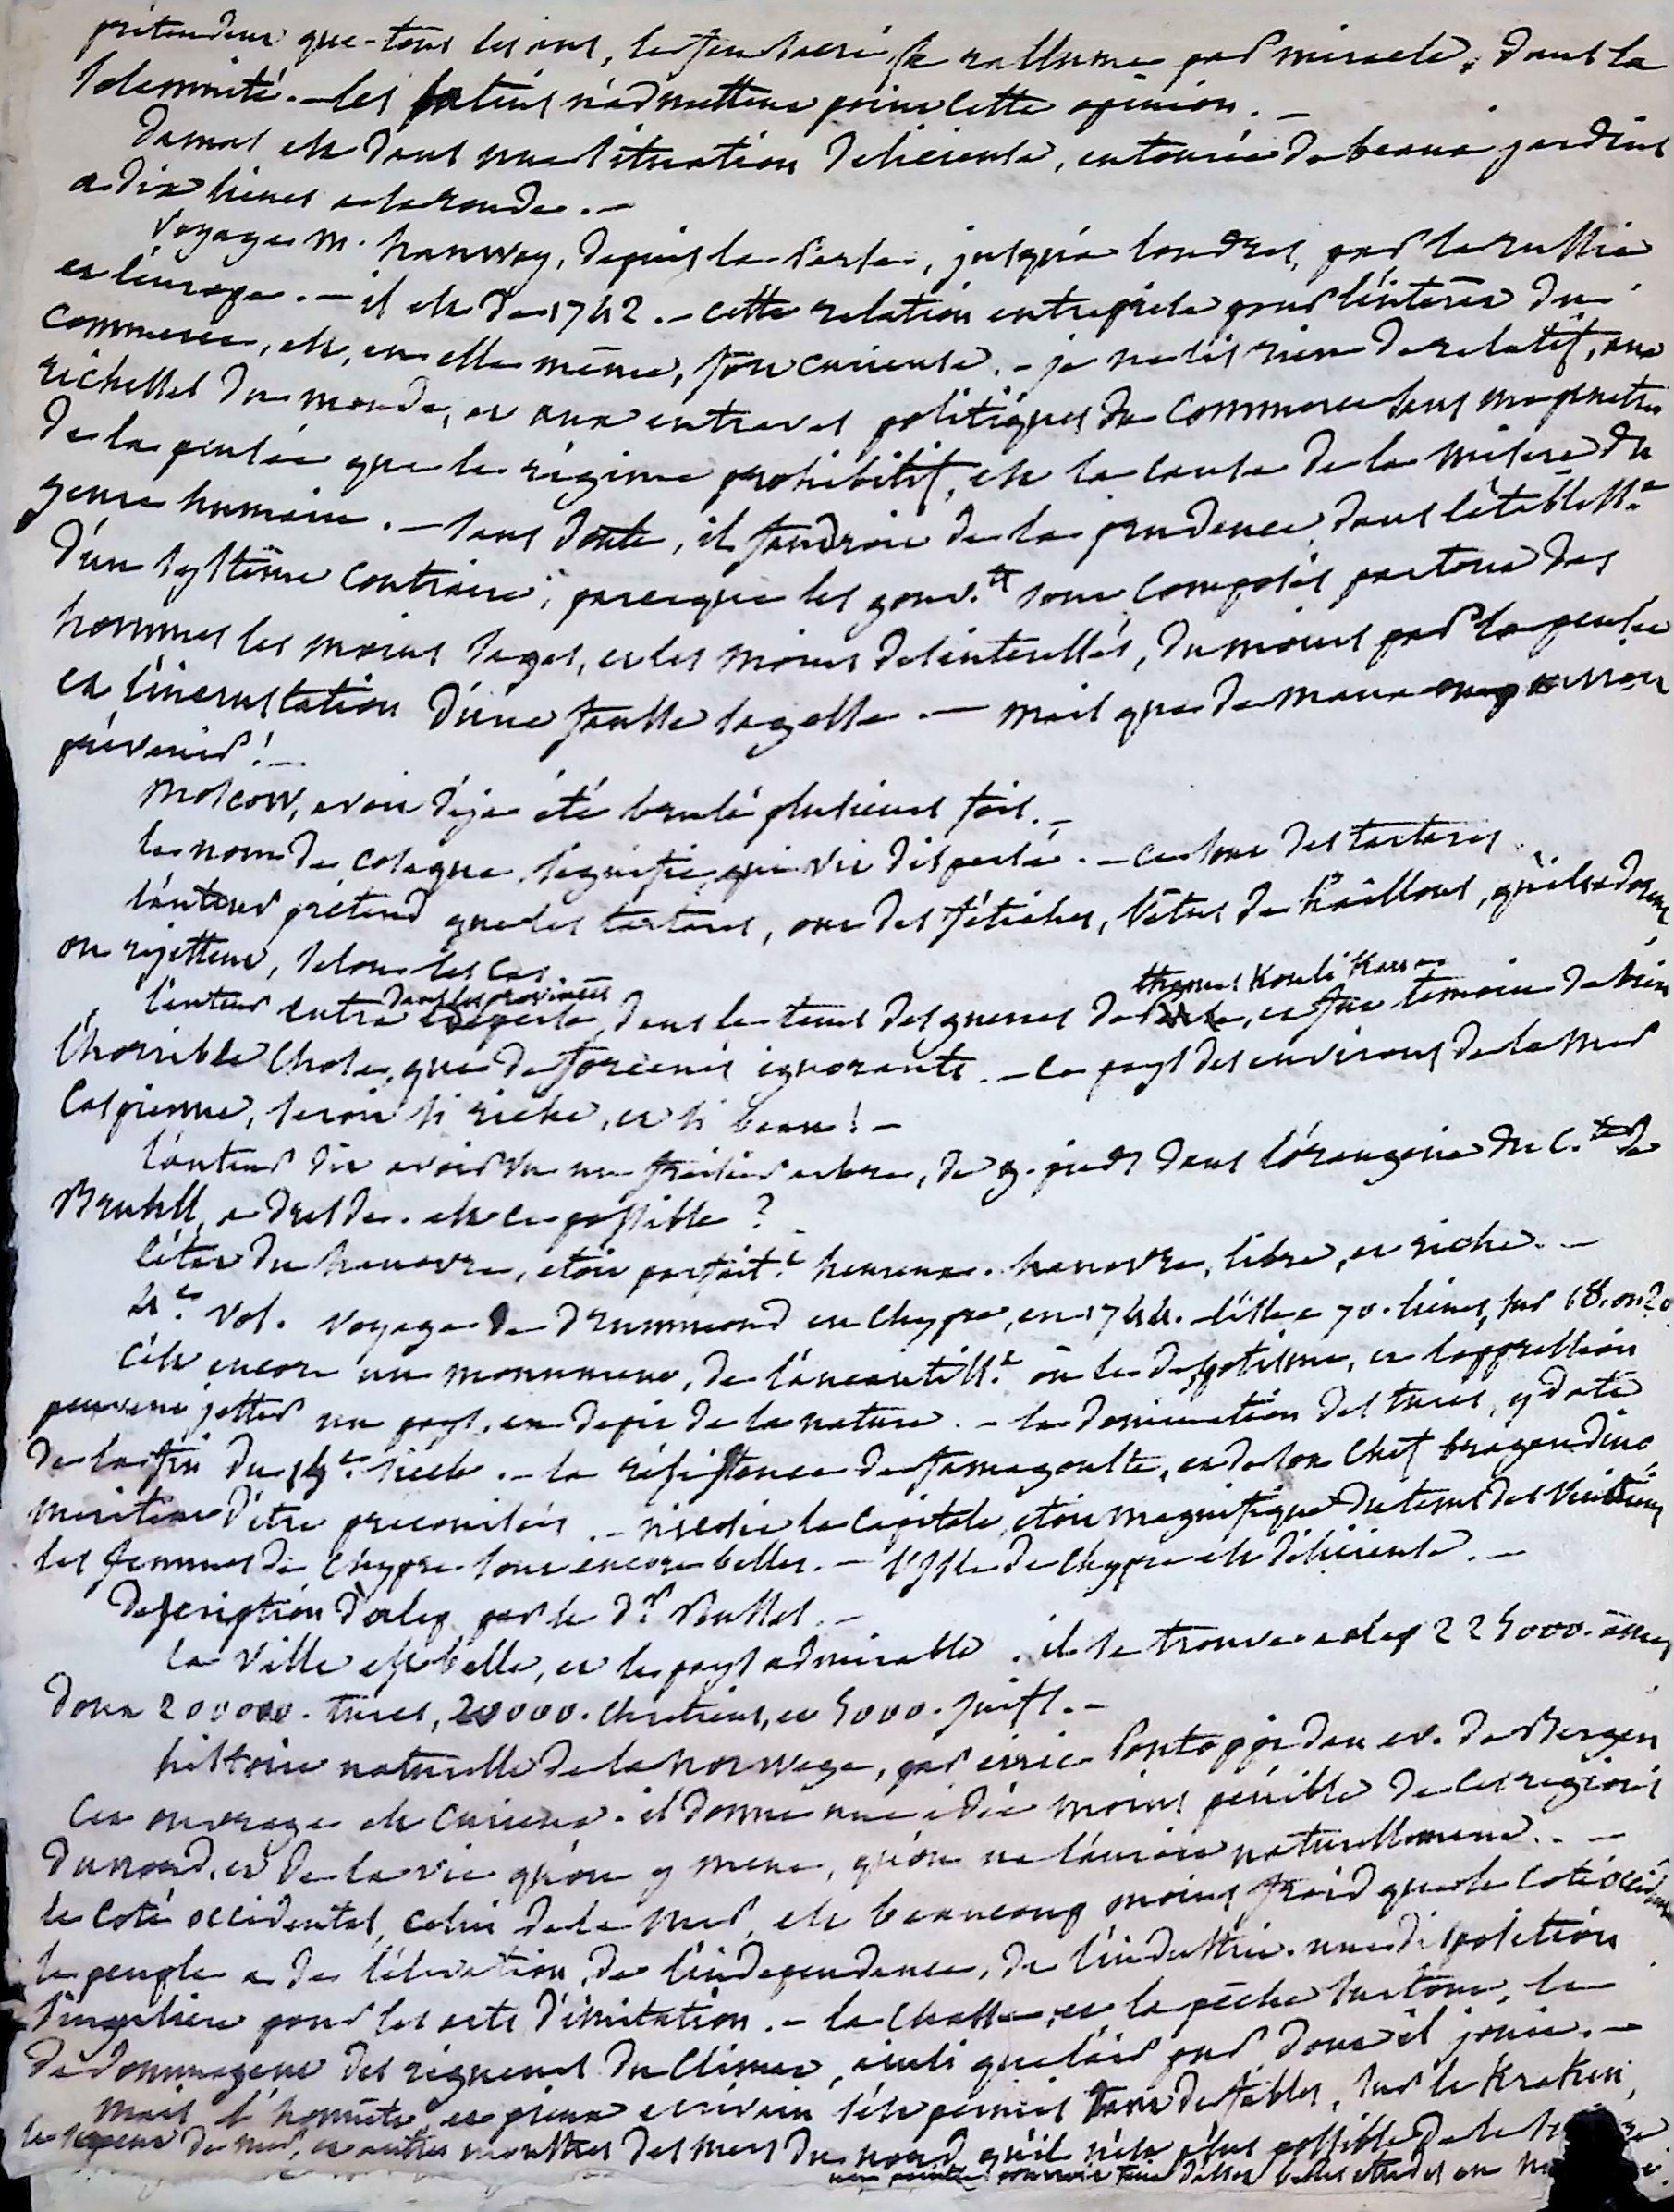 prétendent que tous les ans, le feu sacré se rallume par miracle, dans la
solemnité. - les latins n'admettent point cette opinion. -
Damas est dans une situation délicieuse, entourée de beaux jardins
a dix lieues a la ronde. -
Voyages M. hanway, depuis la Perse, jusqu'à londres, par la russie
et l'europe. - il est de 1742. - cette relation entreprise pour l'intérêt du
commerce, est, en elle même, fort curieuse. - je ne lis rien de relatif, aux
richesses du monde, et aux entraves politiques du commerce sans me penetrer
de la pensée que le régime prohibitif, est la cause de la misere du
genre humain. - sans doute, il faudroit de la prudence dans l'établisst
d'un systême contraire; parceque les gouv.ts sont composés partout des
hommes les moins sages, et les moins desinteressés, du moins par la pensée
et l'incrustation d'une fausse sagesse. - mais que de maux on pourroit
prévenir! -
Moscow, avoit déja été brulé plusieurs fois. -
le nom de cosaque, signifie, qui vit dispersé. - ce sont des tartares.
l'auteur prétend que les tartares, ont des fétiches, vêtus de haillons, qu'ils adorent
ou rejettent, selon les cas. -
l'auteur entra dans les provinces de perse, dans le tems des guerres de thamas Kouli Kan, et fut témoin de bien
l'horrible chose, que de forcenés ignorants. - ce pays des environs de la mer
Caspienne, seroit si riche, et si beau! -
l'auteur dit avoir vu un fraisier arbre, de 9. pieds dans l'orangerie du C.te de
Bruhll, a dresde. est ce possible?
l'état du hanovre, etoit parfait.t heureux. hanovre, libre, et riche. -
4.e vol. voyage de drummond en chypre, en 1744. - l'isle a 70. lieues, sur 18. ou 20
c'est encore un monument, de l'aneantisst où le despotisme, et l'oppression
peuvent jetter un pays, en depit de la nature. - la domination des turcs, y date
de la fin du 15.e siecle. - la résistance de famagouste, et de son chef bragandino
méritent d'être preconisés. - nicosie la capitale, etoit magnifique du tems des Vénitiens
les femmes de chypre sont encore belles. - l'isle de chypre est délicieuse. -
Description d'alep par le D.r Russel. -
la ville est belle, et le pays admirable. il se trouve a alep 225000. ames
dont 200000. turcs, 20000. chretiens, et 5000. juifs. -
histoire naturelle de la norwege, par erric Pontoppidan ev. de Bergen
cet ouvrage est curieux. il donne une idée moins pénible de ces regions
du nord, et de la vie qu'on y mene, qu'on ne l'auroit naturellement. -
le coté occidental, celui de la mer, est beaucoup moins froid que le coté
le peuple a de l'élévation, de l'independance, de l'industrie. une disposition
singuliere pour les arts d'imitation. - la chasse, et la pêche surtout, le
dedommagent des rigueurs du climat, ainsi que l'air pur dont il jouit. -
mais l'honnête, et pieux ecrivain s'est permis tant de fables, sur le Kraken,
le serpent de mer, et autres monstres des mers du nord, qu'il n'est plus possible de le